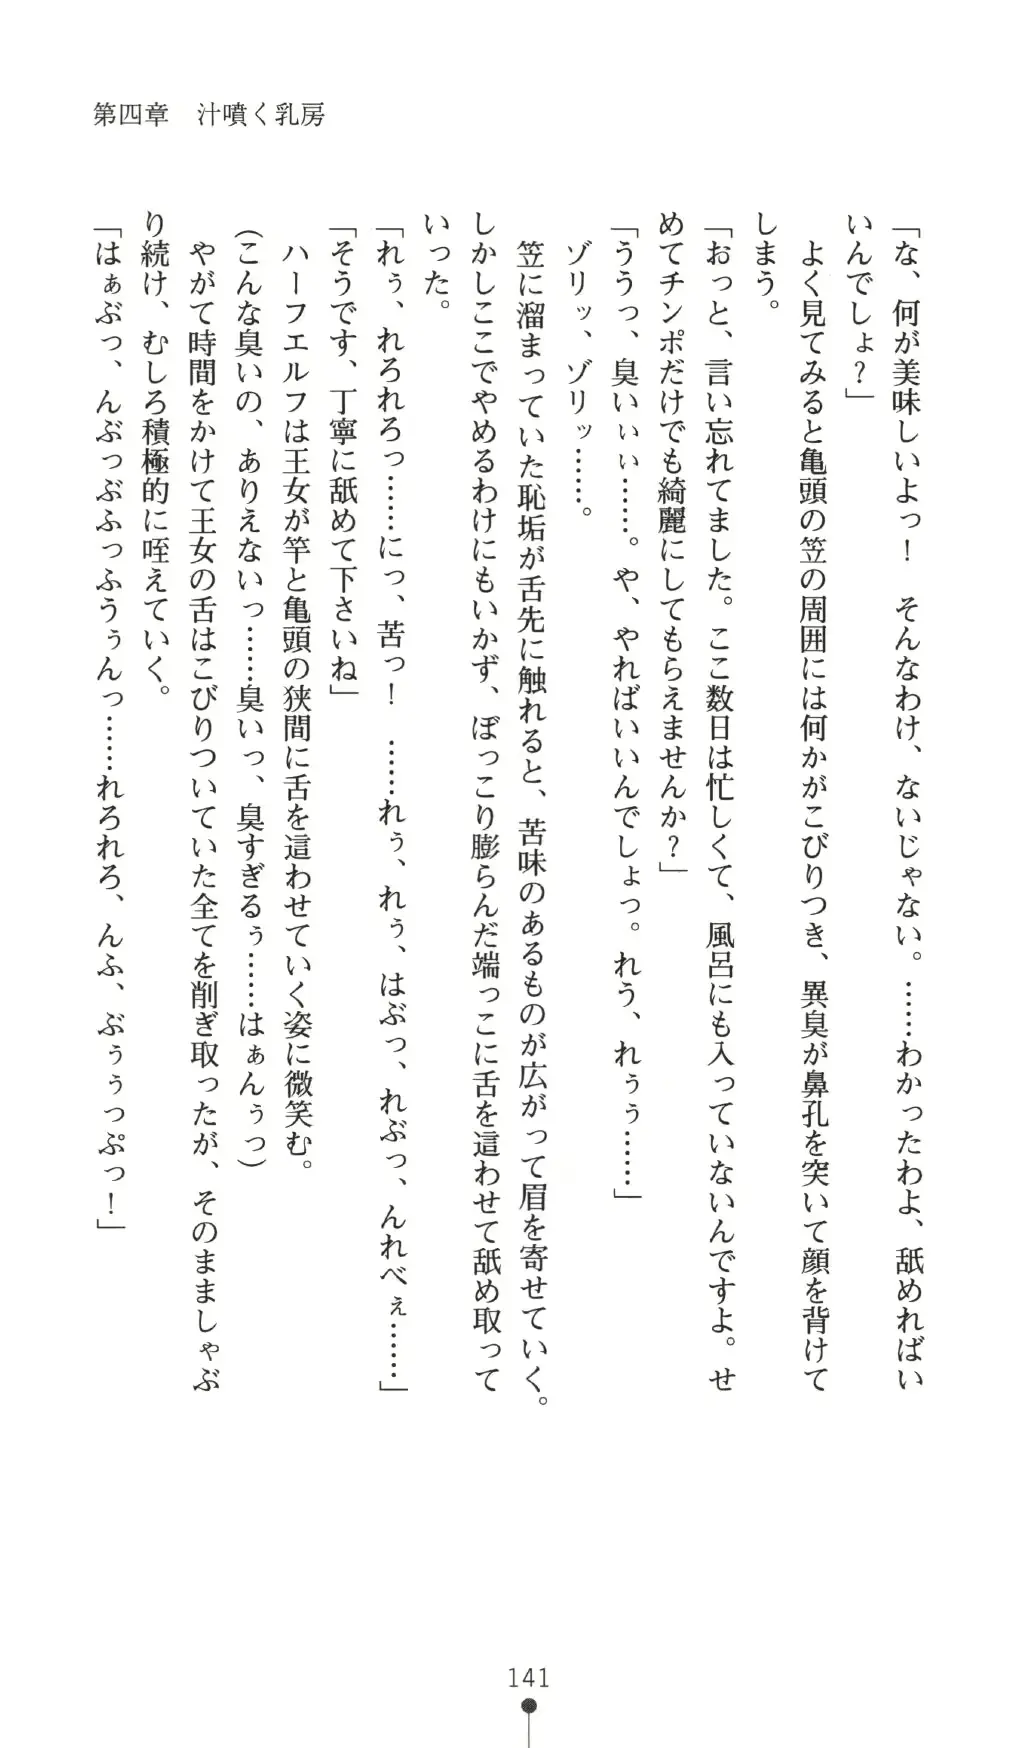 第四章　汁噴く乳房
「な、何が美味しいよっ！　そんなわけ、ないじゃない。……わかったわよ、舐めればい
いんでしょ？」
　よく見てみると亀頭の笠の周囲には何かがこびりつき、異臭が鼻孔を突いて顔を背けて
しまう。
「おっと、言い忘れてました。ここ数日は忙しくて、風呂にも入っていないんですよ。せ
めてチンポだけでも綺麗にしてもらえませんか？」
「ううっ、臭いぃぃ……。や、やればいいんでしょっ。れう、れぅぅ……」
　ゾリッ、ゾリッ……。
　笠に溜まっていた恥垢が舌先に触れると、苦味のあるものが広がって眉を寄せていく。
しかしここでやめるわけにもいかず、ぼっこり膨らんだ端っこに舌を這わせて舐め取って
いった。
「れぅ、れろれろっ……にっ、苦っ！　……れぅ、れぅ、はぶっ、れぶっ、んれべぇ……」
「そうです、丁寧に舐めて下さいね」
　ハーフエルフは王女が竿と亀頭の狭間に舌を這わせていく姿に微笑む。
（こんな臭いの、ありえないっ……臭いっ、臭すぎるぅ……はぁんぅっ）
　やがて時間をかけて王女の舌はこびりついていた全てを削ぎ取ったが、そのまましゃぶ
り続け、むしろ積極的に咥えていく。
「はぁぶっ、んぶっぶふっふうぅんっ……れろれろ、んふ、ぶぅぅっぷっ！」
141